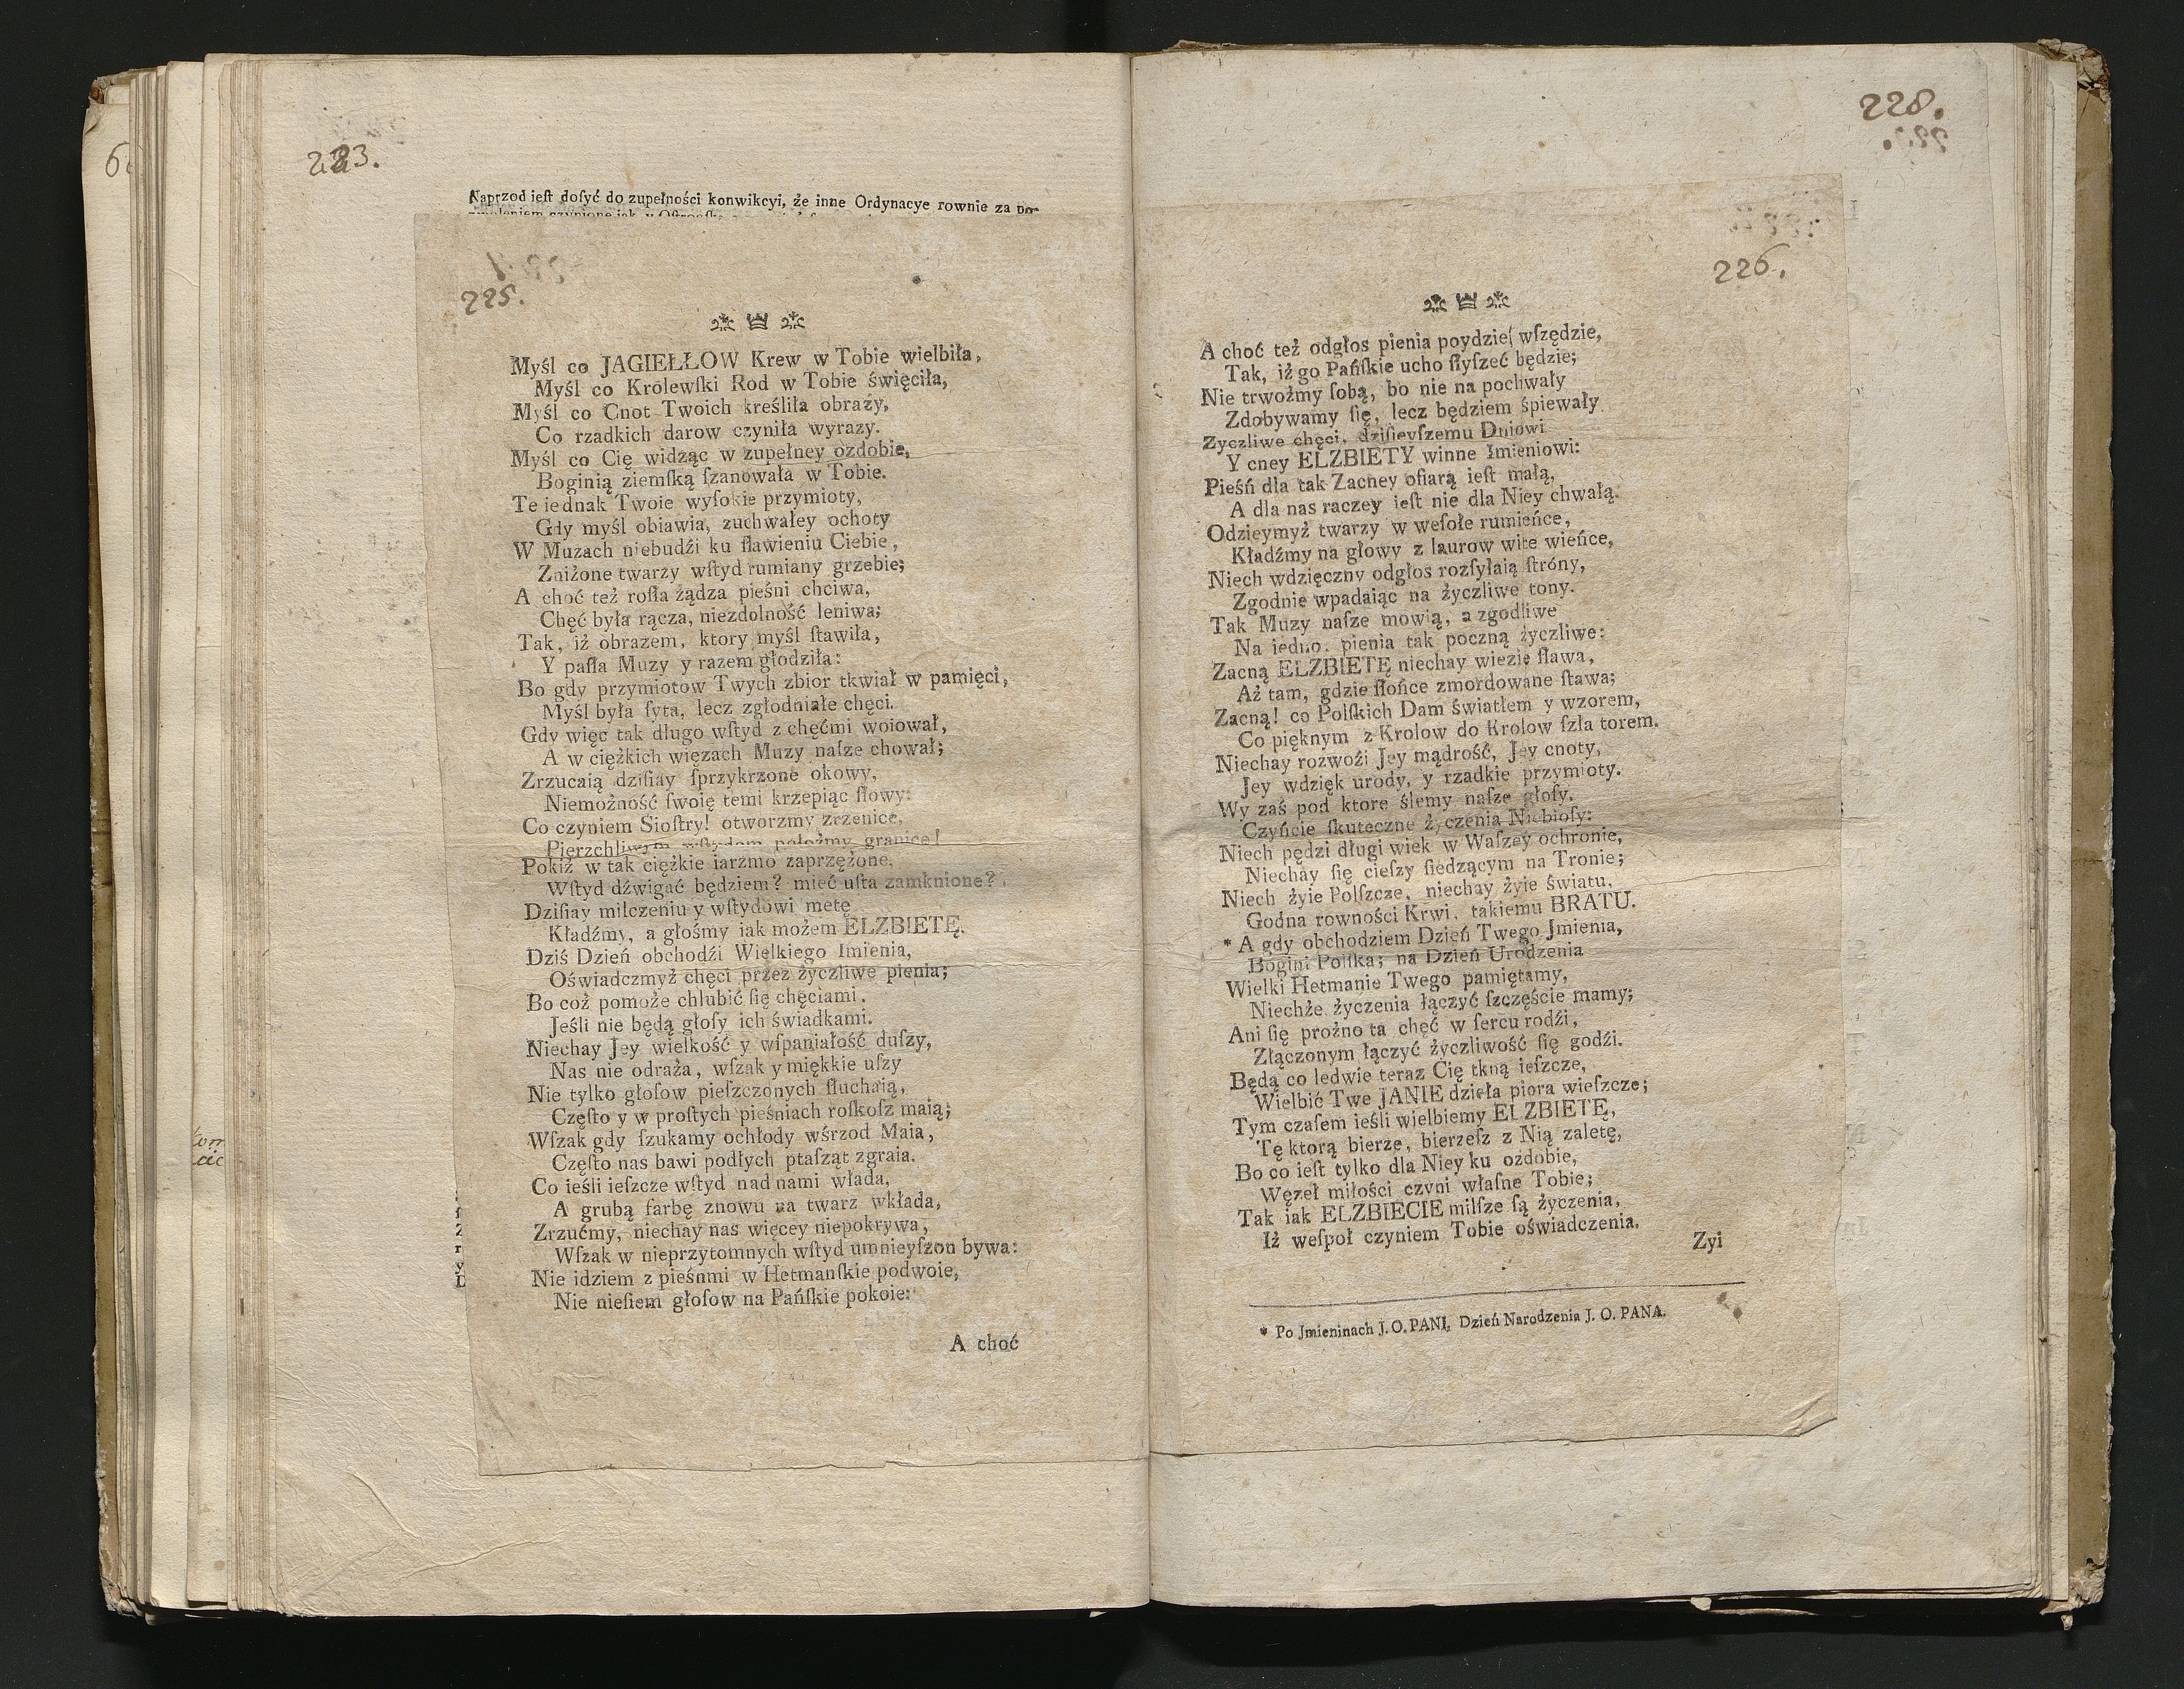 223.
Naprzod ieſt doſyć do zupełności konwikcyi, że inne Ordynacye rownie za po-
225.
Myśl co JAGIEŁŁOW Krew w Tobie wielbiła,
Myśl co Krolewſki Rod w Tobie święciła,
Myśl co Cnot Twoich kreśliła obrazy,
Co rzadkich darow czyniła wyrazy.
Myśl co Cię widząc w zupełney ozdobie,
Boginią ziemſką ſzanowała w Tobie.
Te iednak Twoie wyſokie przymioty,
Gdy myśl obiawia, zuchwałey ochoty
W Muzach niebudźi ku ſławieniu Ciebie,
Zniżone twarzy wſtyd rumiany grzebie;
A choć też roſła żądza pieśni chciwa,
Chęć była rącza, niezdolność leniwa;
Tak, iż obrazem, ktory myśl ſtawiła,
Y paſła Muzy y razem głodziła:
Bo gdy przymiotow Twych zbior tkwiał w pamięci,
Myśl była ſyta, lecz zgłodniałe chęci.
Gdy więc tak długo wſtyd z chęćmi woiował,
A w ciężkich więzach Muzy naſze chował;
Zrzucaią dziſiay ſprzykrzone okowy,
Niemożność ſwoię temi krzepiąc ſłowy:
Co czyniem Sioſtry! otworzmy zrzenice,
Pierzchliwym wſtydom połoźmy granice!
Pokiż w tak ciężkie iarzmo zaprzężone,
Wſtyd dźwigać będziem? mieć uſta zamknione?
Dziſiay milczeniu y wſtydowi metę
Kładźmy, a głośmy iak możem ELZBIETĘ.
Dziś Dzień obchodźi Wielkiego Imienia,
Oświadczmyż chęci przez życzliwe pienia;
Bo coż pomoże chlubić ſię chęciami,
Jeśli nie będą głoſy ich świadkami.
Niechay Jey wielkość y wſpaniałość duſzy,
Nas nie odraża, wſzak y miękkie uſzy
Nie tylko głoſow pieſzczonych ſłuchaią,
Częſto y w proſtych pieśniach roſkoſz maią;
Wſzak gdy ſzukamy ochłody wśrzod Maia,
Częſto nas bawi podłych ptaſząt zgraia.
Co ieśli ieſzcze wſtyd nad nami włada,
A grubą farbę znowu na twarz wkłada,
Zrzućmy, niechay nas więcey niepokrywa,
Wſzak w nieprzytomnych wſtyd umnieyſzon bywa:
Nie idziem z pieśnmi w Hetmanſkie podwoie,
Nie nieſiem głoſow na Pańſkie pokoie:
A choć
228.
226.
A choć też odgłos pienia poydzie wſzędzie,
Tak, iż go Pańſkie ucho ſłyſzeć będzie;
Nie trwożmy ſobą, bo nie na pochwały
Zdobywamy ſię, lecz będziem śpiewały
Zyczliwe chęci, dziſieyſzemu Dniowi
Y cney ELZBIETY winne Imieniowi:
Pieśń dla tak Zacney ofiarą ieſt małą,
A dla nas raczey ieſt nie dla Niey chwałą.
Odzieymyż twarzy w weſołe rumieńce,
Kładźmy na głowy z laurow wite wieńce,
Niech wdzięczny odgłos rozſyłaią ſtróny,
Zgodnie wpadaiąc na życzliwe tony.
Tak Muzy naſze mowią, a zgodliwe
Na iedno, pienia tak poczną życzliwe:
Zacną ELZBIETĘ niechay wiezie ſława,
Aż tam, gdzie ſłońce zmordowane ſtawa;
Zacną! co Polſkich Dam światłem y wzorem,
Co pięknym z Krolow do Krolow ſzła torem.
Niechay rozwoźi Jey mądrość, Jey cnoty,
Jey wdzięk urody, y rzadkie przymioty.
Wy zaś pod ktore ślemy naſze głoſy,
Czyńcie ſkuteczne życzenia Niebioſy:
Niech pędzi długi wiek w Waſzey ochronie,
Niechay ſię cieſzy ſiedzącym na Tronie;
Niech żyie Polſzcze, niechay żyie światu,
Godna rowności Krwi, takiemu BRATU.
* A gdy obchodziem Dzień Twego Jmienia,
Bogini Polſka; na Dzień Urodzenia
Wielki Hetmanie Twego pamiętamy,
Niechże życzenia łączyć ſzczęście mamy;
Ani ſię prożno ta chęć w ſercu rodźi,
Złączonym łączyć życzliwość ſię godźi.
Będą co ledwie teraz Cię tkną ieſzcze,
Wielbić Twe JANIE dzieła piora wieſzcze;
Tym czaſem ieśli wielbiemy ELZBIETĘ,
Tę ktorą bierze, bierzeſz z Nią zaletę,
Bo co ieſt tylko dla Niey ku ozdobie,
Węzeł miłości czyni właſne Tobie;
Tak iak ELZBIECIE milſze ſą życzenia,
Iż weſpoł czyniem Tobie oświadczenia.
Zyi
* Po Jmieninach J. O. PANI, Dzień Narodzenia J. O. PANA.